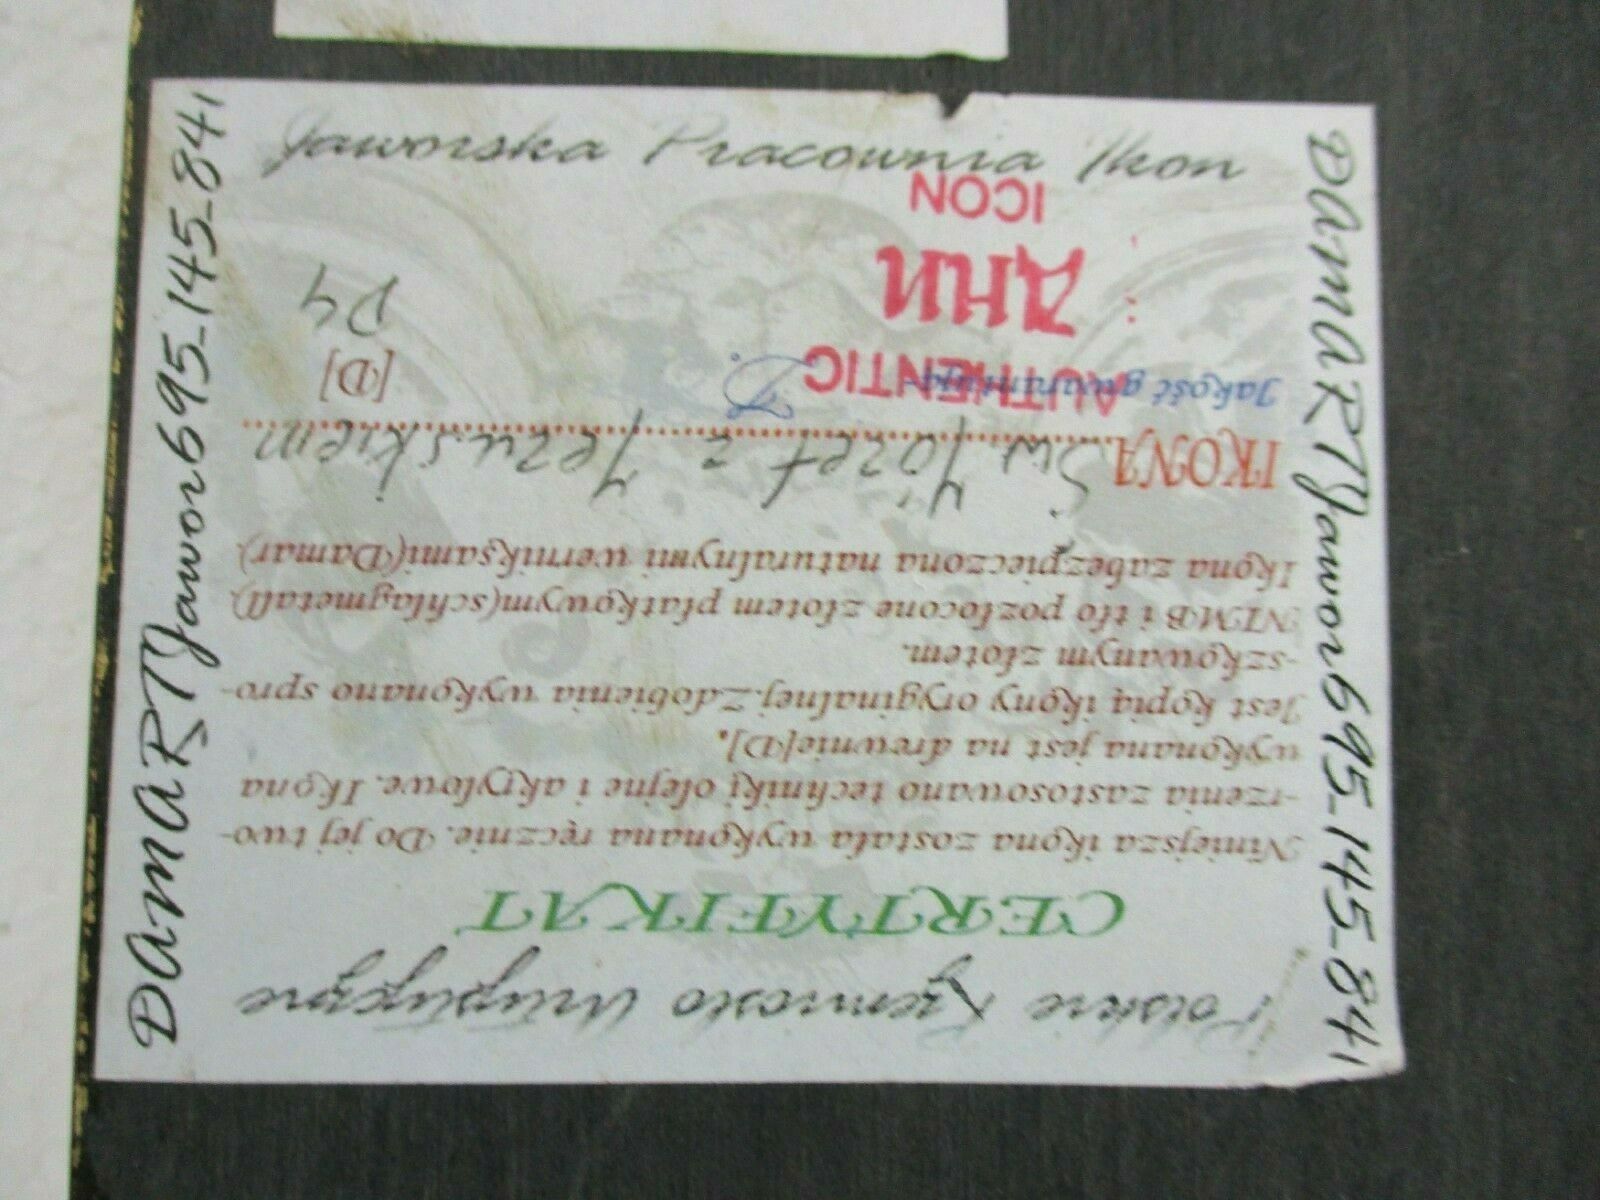 Polskie Rzemiosło Artystyczne
CERTYFIKAT
Niniejsza ikona została wykonana ręcznie. Do jej two-
-rzenia zastosowano techniki olejne i akrylowe. Ikona
wykonana jest na drewnie[D].
Jest kopią ikony oryginalnej. Zdobienia wykonano spro-
-szkowanym złotem.
NIMB i tło pozłocone złotem płatkowym(schlagmetall)
Ikona zabezpieczona naturalnymi werniksami(Damar)
IKONA Św. Józef z Jezuskiem
[D]
D4
Jakość gwarantuje
AUTHENTIC
ДНИ
ICON
Jaworska Pracownia Ikon
DAmARTJawor695-145-841
DAmARTJawor695-145-841